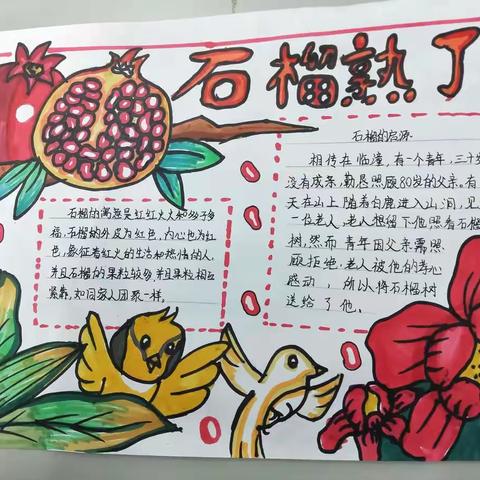 石榴熟了
石榴的寓意是红红火火和多子多
福，石榴的外皮为红色，内心也为红
色，象征着红火的生活和热情的人，
并且石榴的果粒较多，并且果粒相互
紧靠，如同家人团聚一样。
石榴的启源：
相传在临潼，有一个青年，三十岁
没有成亲，勤恳照顾80岁的父亲。有
天在山上随着白鹿进入山洞，见
一位老人，老人想留下他照看石榴
树，然而青年因父亲需照
顾拒绝，老人被他的孝心
感动，所以将石榴树
送给了他。